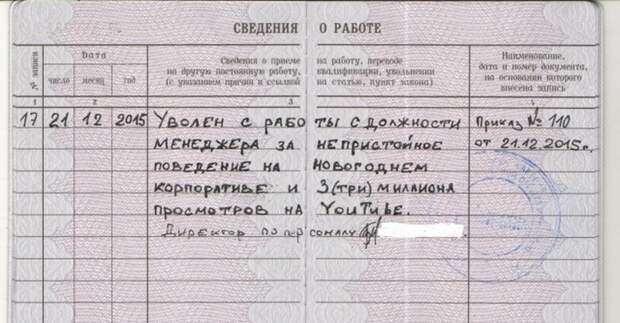 СВЕДЕНИЯ О РАБОТЕ
№ записи
Дата
число месяц год
Сведения о приеме на работу, переводе
на другую постоянную работу, квалификации, увольнении
(с указанием причин и ссылкой на статью, пункт закона)
Наименование,
дата и номер документа,
на основании которого
внесена запись
1 2 3 4
17 21 12 2015 УВОЛЕН С РАБОТЫ С ДОЛЖНОСТИ Приказ № 110
МЕНЕДЖЕРА ЗА НЕПРИСТОЙНОЕ от 21.12.2015г.
ПОВЕДЕНИЕ НА НОВОГОДНЕМ
КОРПОРАТИВЕ И 3(три) МИЛЛИОНА
ПРОСМОТРОВ НА YouTube.
Директор по персоналу